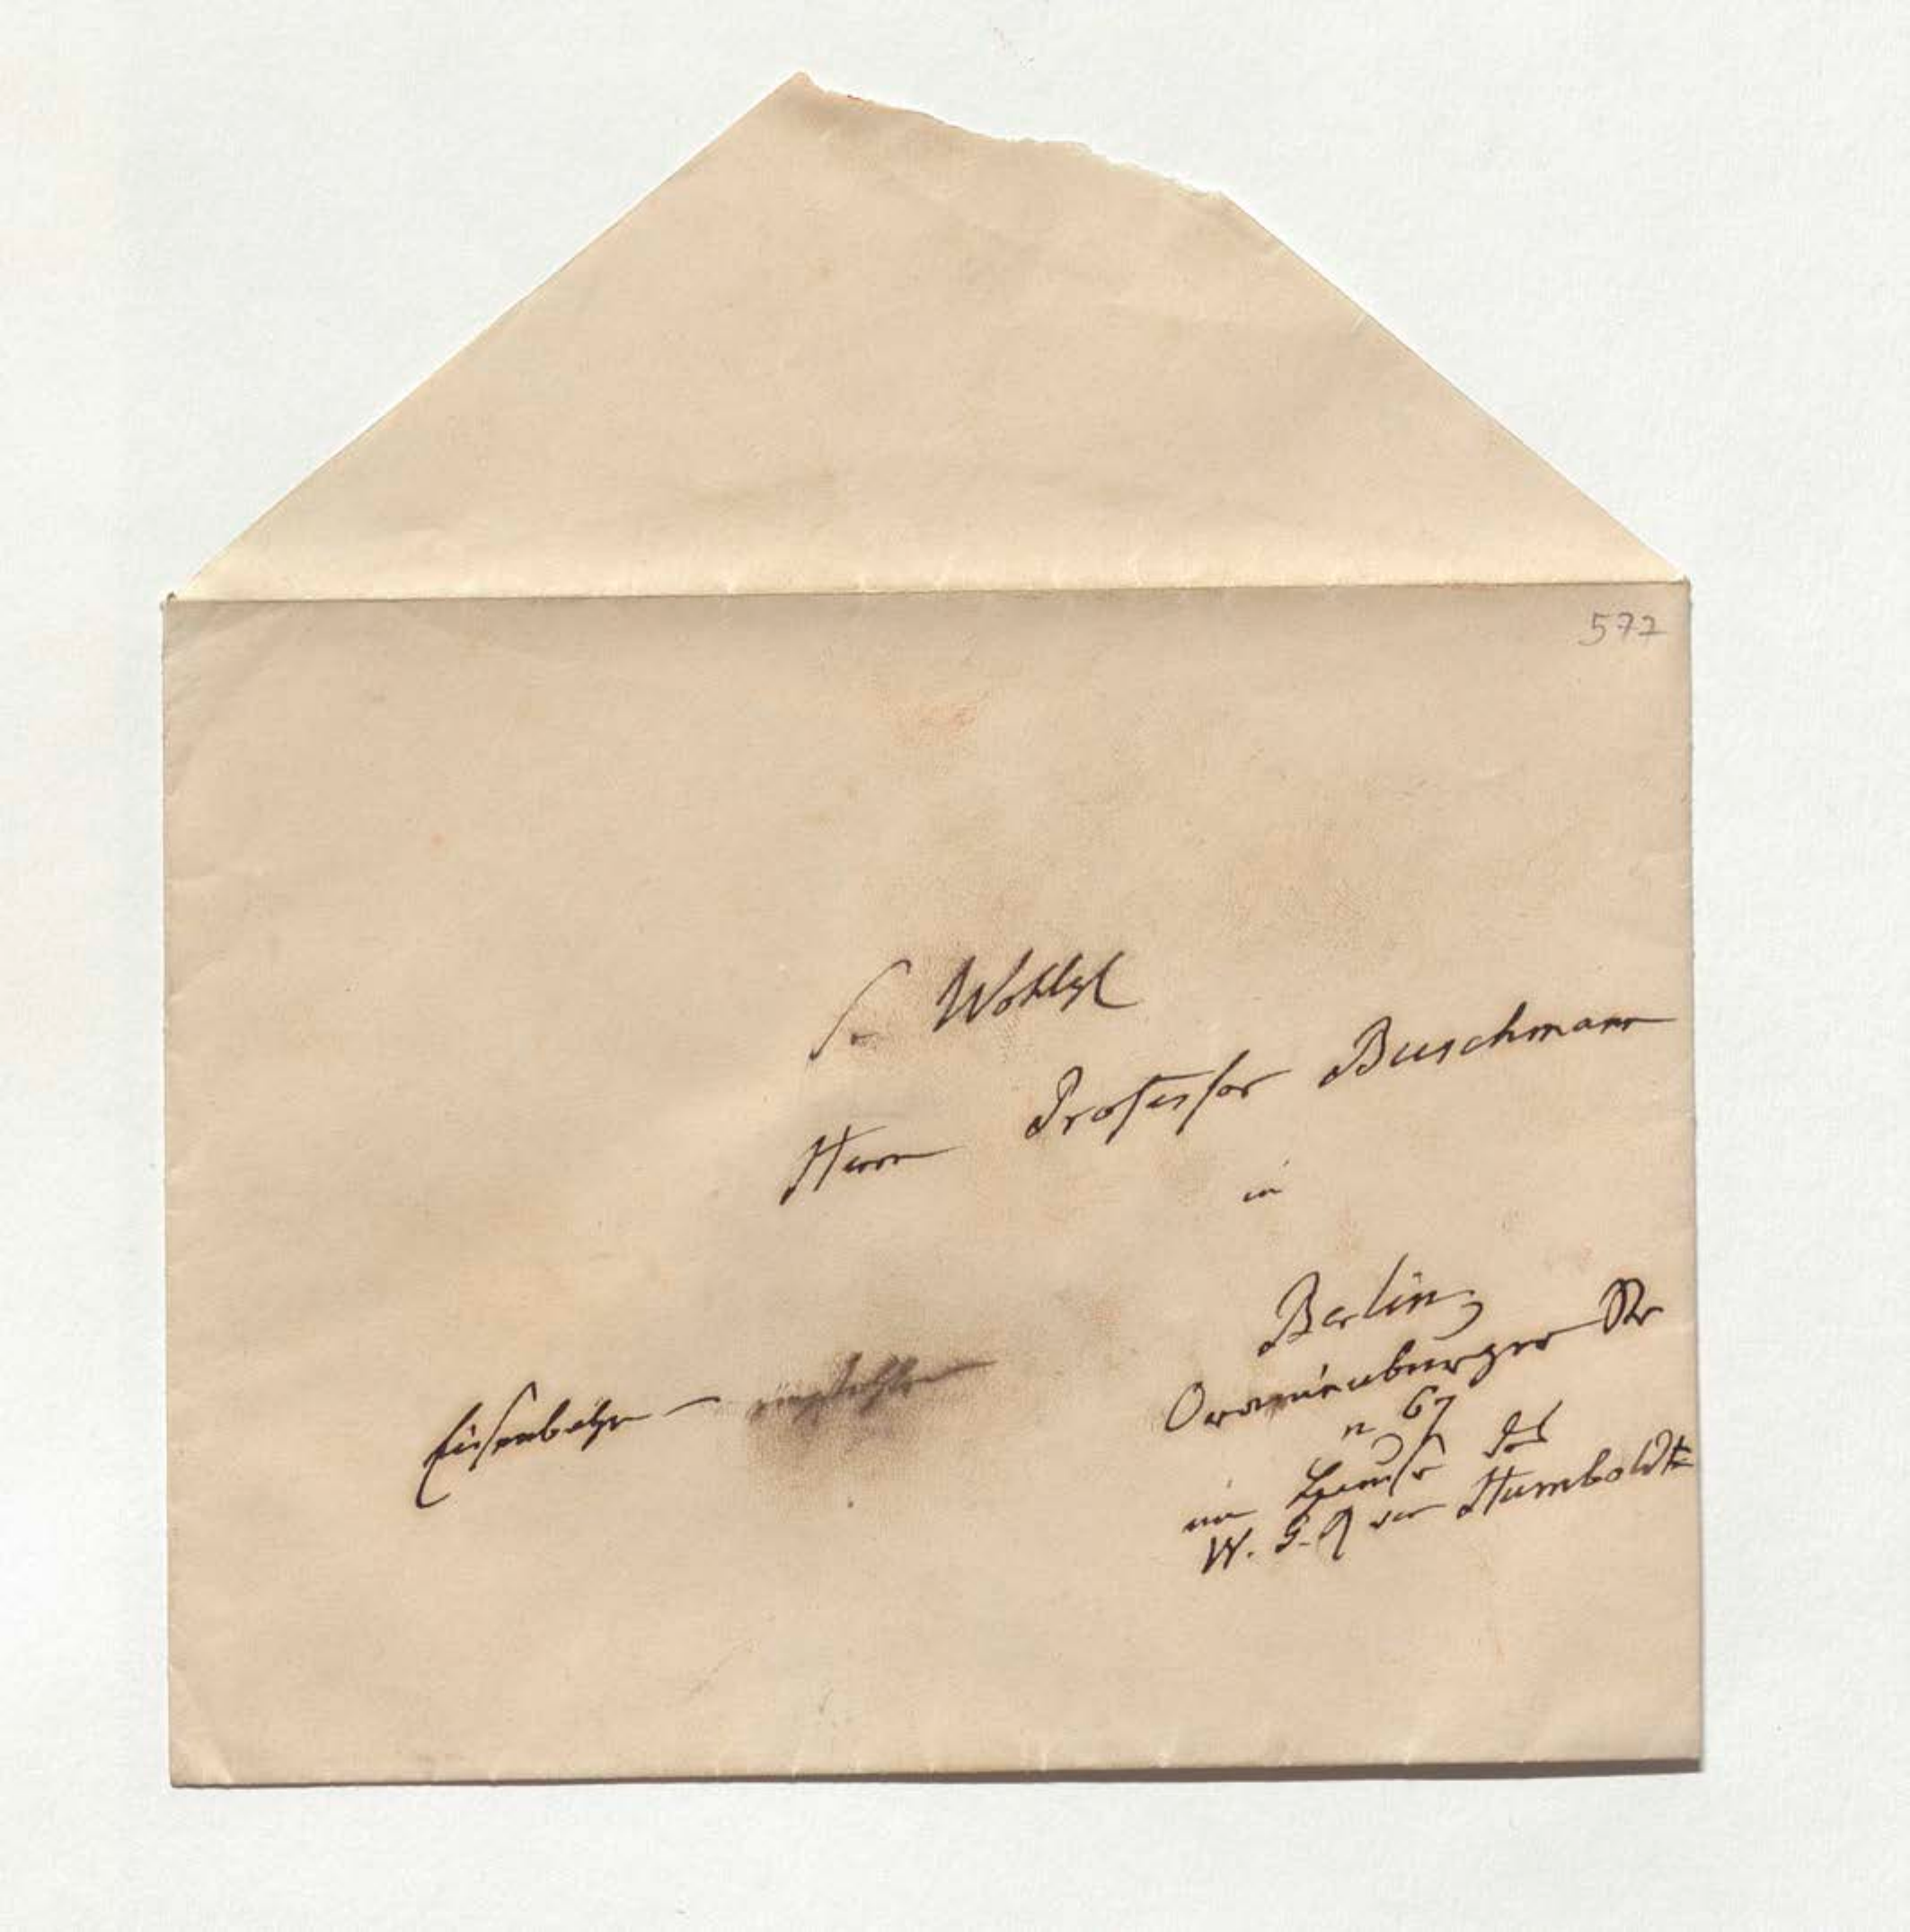 577
S. Wohlgb
Herrn Professor Buschmann
in
Berlin,
Oranienburger Str
n 67
im Hause des
W. G. R von Humboldt
Eisenbahn –